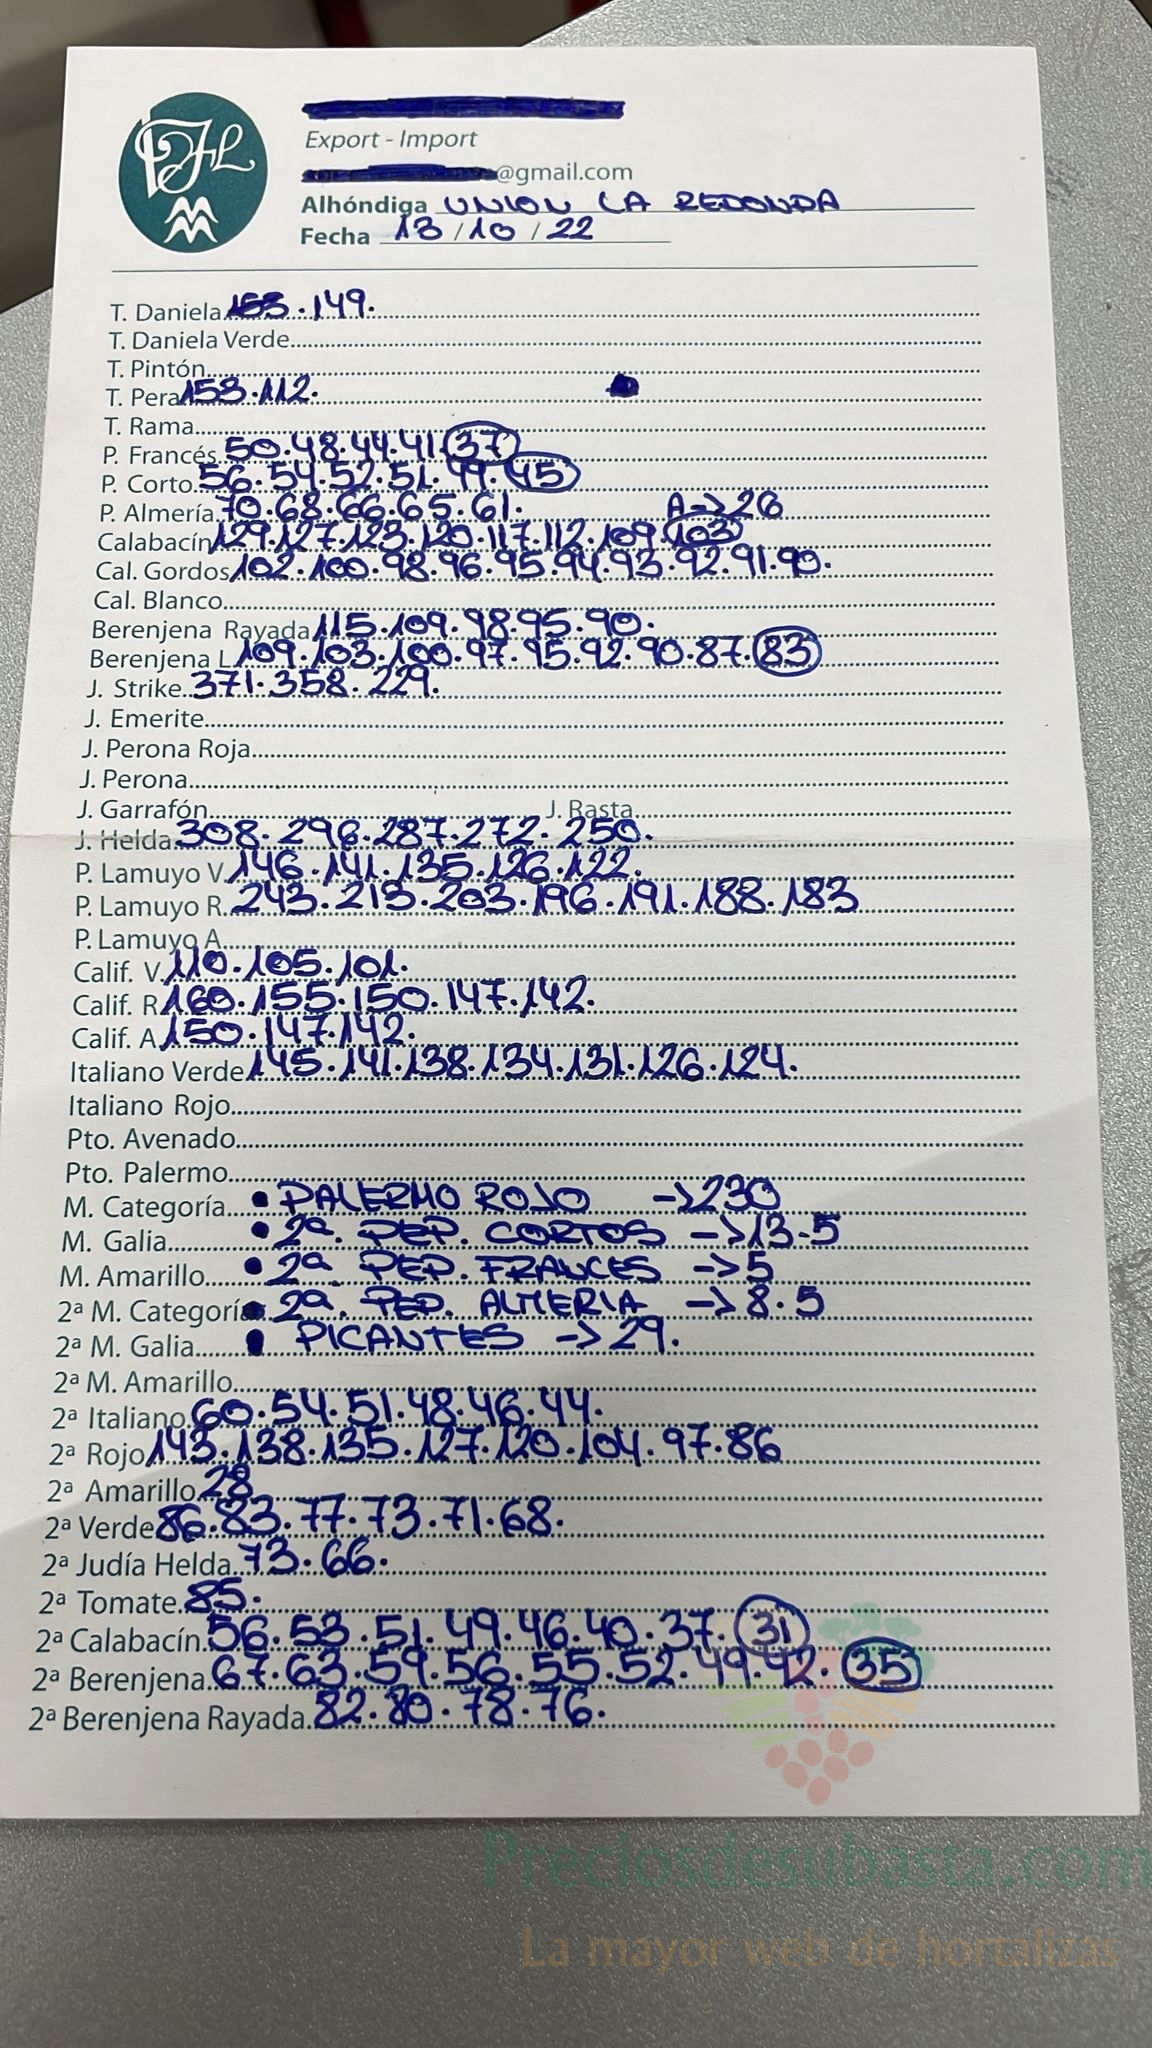 Export - Import
@gmail.com
Alhóndiga UNION LA REDONDA
Fecha 13 / 10 / 22
T. Daniela 153.149.
T. Daniela Verde
T. Pintón
T. Pera 153.112.
T. Rama
P. Francés 50.48.44.41.37
P. Corto 56.54.52.51.49.45
P. Almería 70.68.66.65.61. A->26
Calabacín 129.127.123.120.117.112.109.103
Cal. Gordos 102.100.98.96.95.94.93.92.91.90.
Cal. Blanco
Berenjena Rayada 115.109.98.95.90.
Berenjena L 109.103.100.97.95.92.90.87.83
J. Strike 371.358.229.
J. Emerite
J. Perona Roja
J. Perona
J. Garrafón J. Rasta
J. Helda 308.296.287.272.250.
P. Lamuyo V. 146.141.135.126.122.
P. Lamuyo R. 243.213.203.196.191.188.183
P. Lamuyo A.
Calif. V. 110.105.101.
Calif. R 160.155.150.147.142.
Calif. A 150.147.142.
Italiano Verde 145.141.138.134.131.126.124.
Italiano Rojo
Pto. Avenado
Pto. Palermo
M. Categoría • PALERMO ROJO ->230
M. Galia • 2ª. PEP. CORTOS ->13.5
M. Amarillo • 2ª. PEP. FRANCES ->5
2ª M. Categoría • 2ª. PEP. ALMERIA ->8.5
2ª M. Galia • PICANTES ->29.
2ª M. Amarillo
2ª Italiano 60.54.51.48.46.44.
2ª Rojo 143.138.135.127.120.104.97.86
2ª Amarillo 28
2ª Verde 86.83.77.73.71.68.
2ª Judía Helda 73.66.
2ª Tomate 85.
2ª Calabacín 56.53.51.49.46.40.37.31
2ª Berenjena 67.63.59.56.55.52.49.42.35
2ª Berenjena Rayada 82.80.78.76.
Preciosdesubasta.com
La mayor web de hortalizas